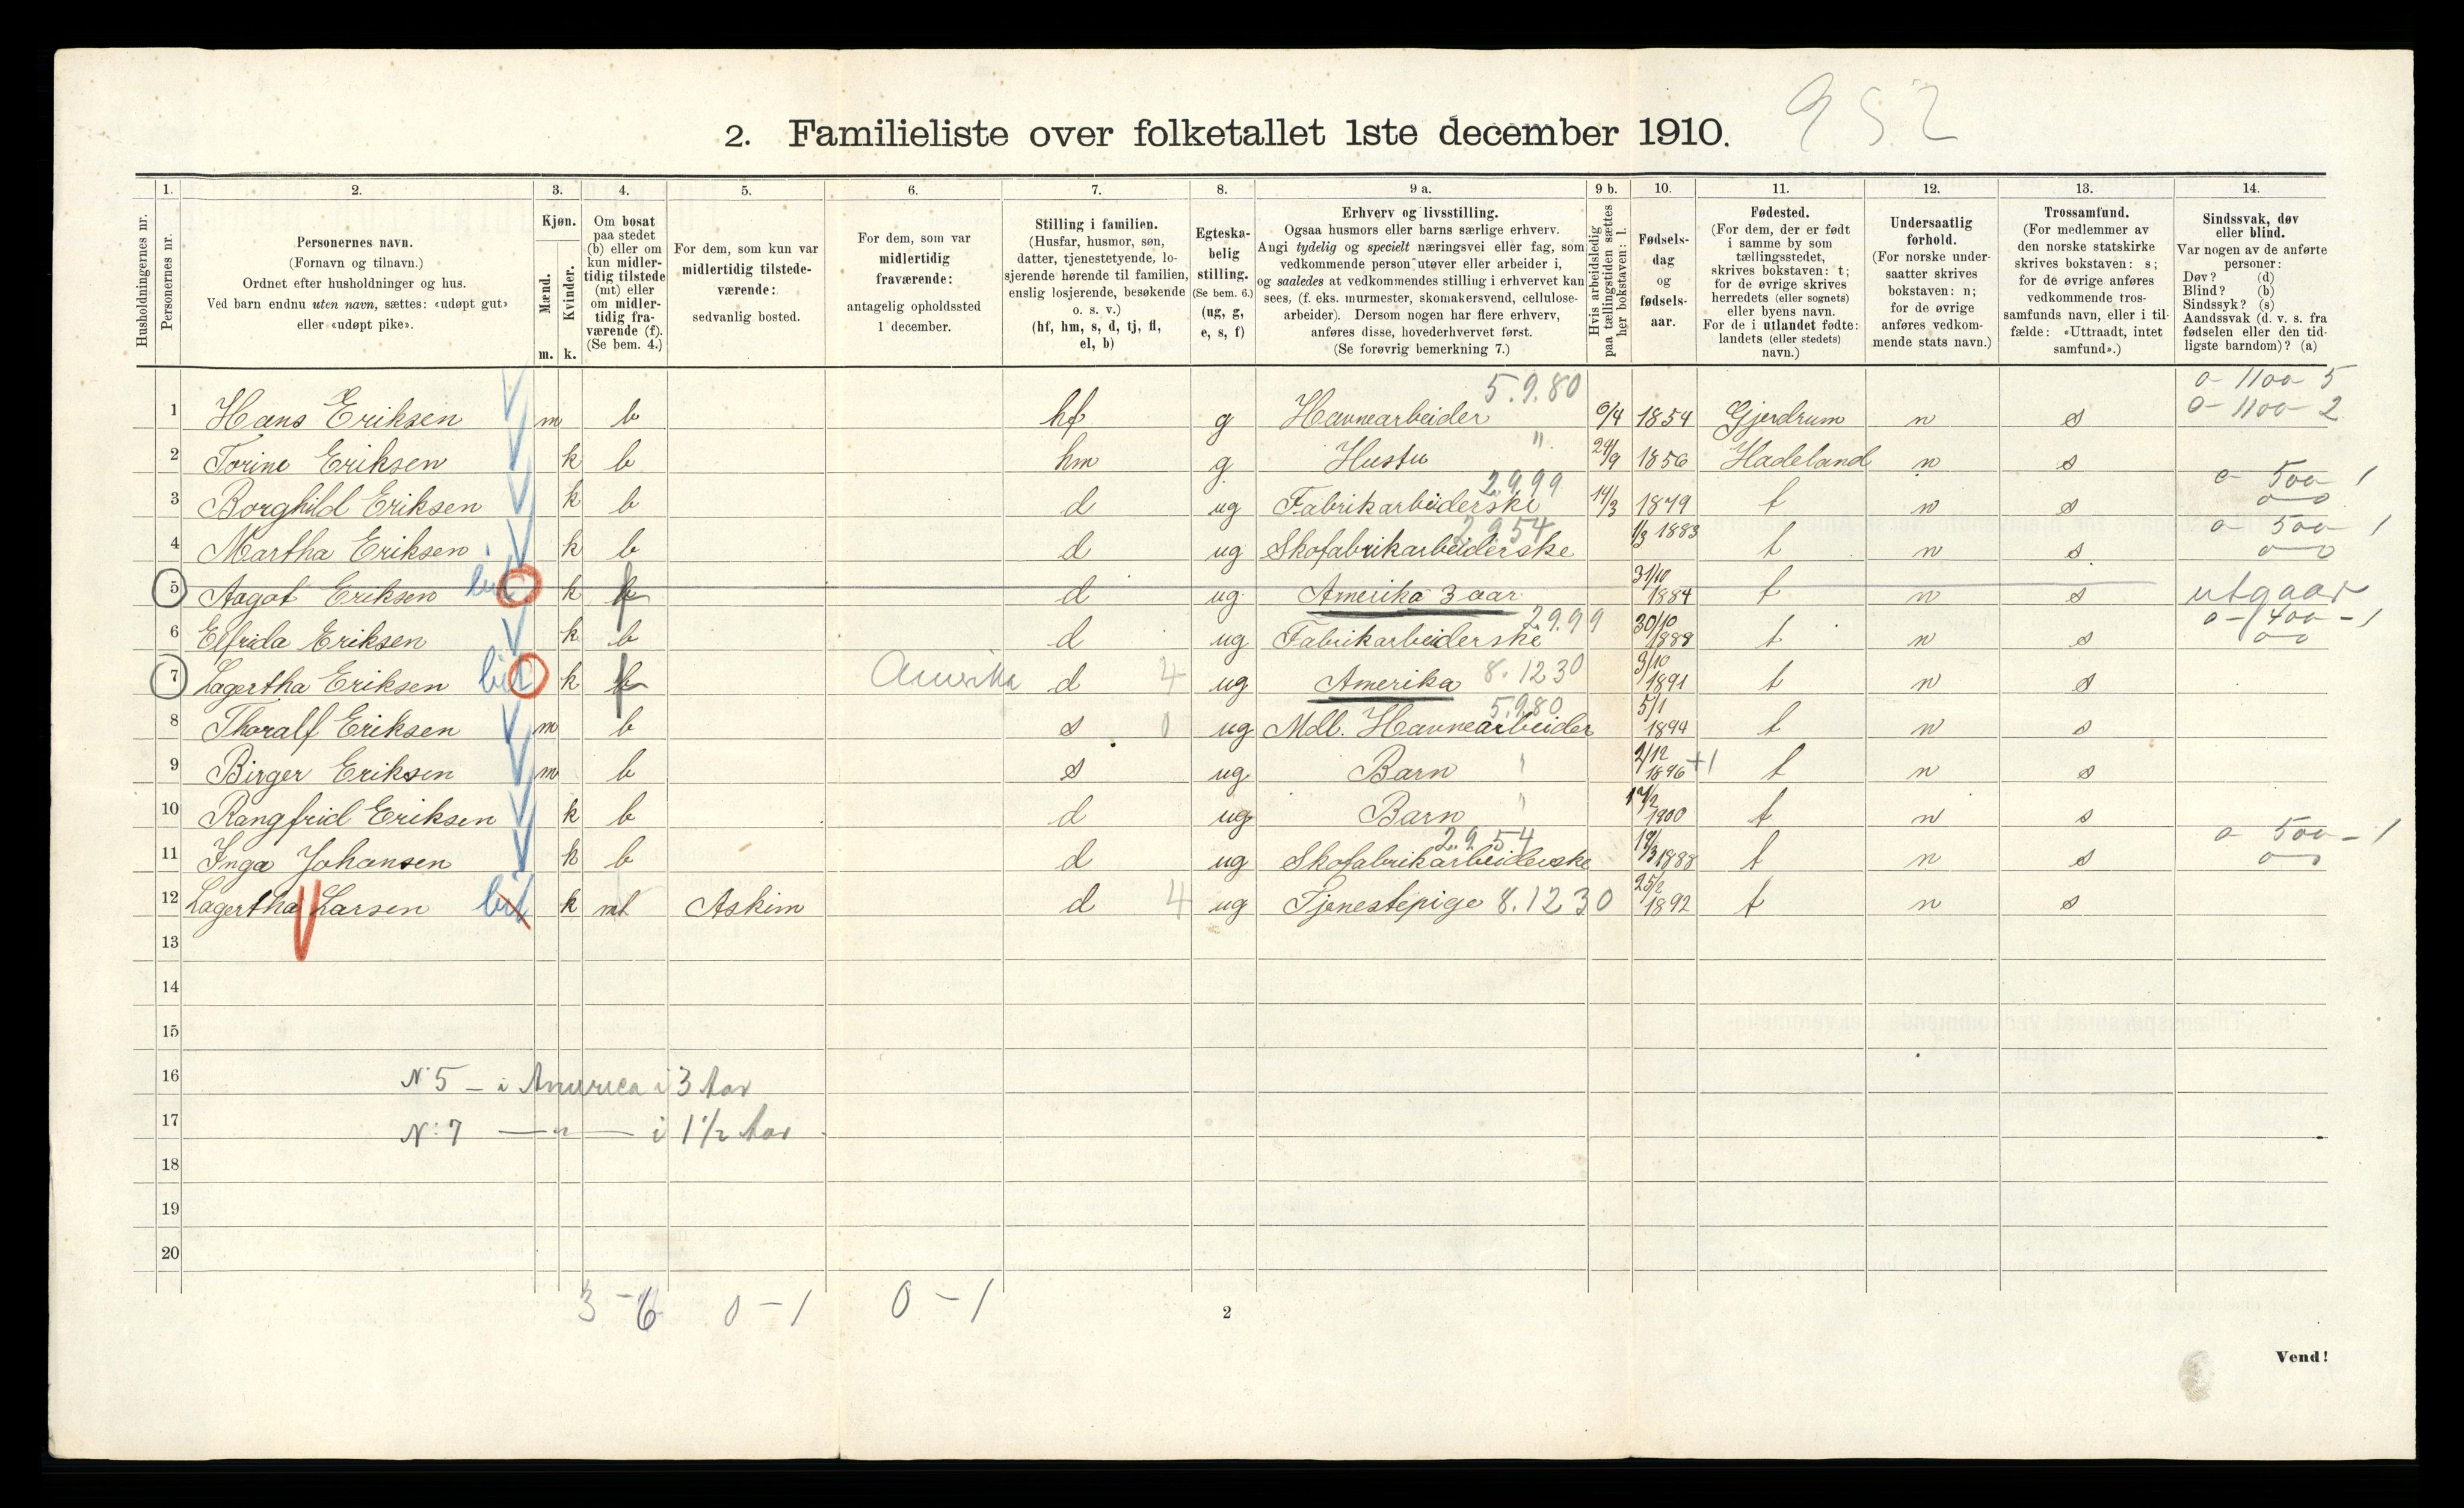 952
2. Familieliste over folketallet 1ste december 1910.
1. 2. 3. 4. 5. 6. 7. 8. 9 a. 9 b. 10. 11. 12. 13. 14.
Husholdningernes nr.
Personernes nr.
Personernes navn.
(Fornavn og tilnavn.)
Ordnet efter husholdninger og hus.
Ved barn endnu uten navn, sættes: «udøpt gut»
eller «udøpt pike».
Kjøn.
Mænd.
Kvinder.
m. k.
Om bosat
paa stedet
(b) eller om
kun midler-
tidig tilstede
(mt) eller
om midler-
tidig fra-
værende (f).
(Se bem. 4.)
For dem, som kun var
midlertidig tilstede-
værende:
sedvanlig bosted.
For dem, som var
midlertidig
fraværende:
antagelig opholdssted
1 december.
Stilling i familien.
(Husfar, husmor, søn,
datter, tjenestetyende, lo-
sjerende hørende til familien,
enslig losjerende, besøkende
o. s. v.)
(hf, hm, s, d, tj, fl,
el, b)
Egteska-
belig
stilling.
(Se bem. 6.)
(ug, g,
e, s, f)
Erhverv og livsstilling.
Ogsaa husmors eller barns særlige erhverv.
Angi tydelig og specielt næringsvei eller fag, som
vedkommende person utøver eller arbeider i,
og saaledes at vedkommendes stilling i erhvervet kan
sees, (f. eks. murmester, skomakersvend, cellulose-
arbeider). Dersom nogen har flere erhverv,
anføres disse, hovederhvervet først.
(Se forøvrig bemerkning 7.)
Hvis arbeidsledig
paa tællingstiden sættes
her bokstaven: l.
Fødsels-
dag
og
fødsels-
aar.
Fødested.
(For dem, der er født
i samme by som
tællingsstedet,
skrives bokstaven: t;
for de øvrige skrives
herredets (eller sognets)
eller byens navn.
For de i utlandet fødte:
landets (eller stedets)
navn.)
Undersaatlig
forhold.
(For norske under-
saatter skrives
bokstaven: n;
for de øvrige
anføres vedkom-
mende stats navn.)
Trossamfund.
(For medlemmer av
den norske statskirke
skrives bokstaven: s;
for de øvrige anføres
vedkommende tros-
samfunds navn, eller i til-
fælde: «Uttraadt, intet
samfund».)
Sindssvak, døv
eller blind.
Var nogen av de anførte
personer:
Døv? (d)
Blind? (b)
Sindssyk? (s)
Aandssvak (d. v. s. fra
fødselen eller den tid-
ligste barndom)? (a)
5.9.80 0- 1100 5
1 Hans Eriksen m b hf g Havnearbeider 6/4 1854 Gjerdrum n s 0-1100-2
2 Torine Eriksen k b hm g Hustu " 24/9 1856 Hadeland n s
2999 0- 500 1
3 Borghild Eriksen k b d ug Fabrikarbeiderske 14/3 1879 t n s 0-0
2954 0- 500 1
4 Martha Eriksen k b d ug Skofabrikarbeiderske 1/3 1883 t n s 0-0
5 Aagot Eriksen k f d ug Amerika 3 aar 31/10 1884 t n s utgaar
2999 0-400-1
6 Elfrida Eriksen k b d ug Fabrikarbeiderske 30/10 1888 t n s 0-0
7 Lagertha Eriksen k f Amerika d 4 ug Amerika 8.1230 3/10 1891 t n s
5.9.80
8 Thoralf Eriksen m b s 0 ug Mdl. Havnearbeider 5/1 1894 t n s
9 Birger Eriksen m b s ug Barn " 2/12 1896 +1 t n s
10 Rangfrid Eriksen k b d ug Barn " 17/2 1900 t n s
29 54 0 500-1
11 Inga Johansen k b d ug Skofabrikarbeiderske 19/3 1888 t n s 0-0
12 Lagertha Larsen k mt Askim d 4 ug Tjenestepige 8.1230 25/2 1892 t n s
13
14
15
16 N 5 - i America i 3 Aar
17 N: 7 —"— i 1 1/2 Aar
18
19
20
3-6 0-1 0-1
2
Vend!